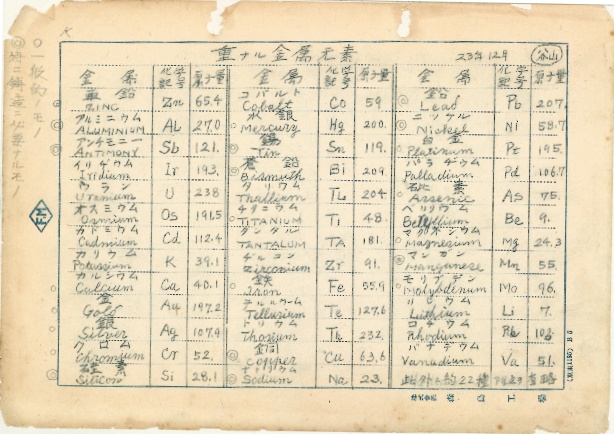 重ナル金属元素
23年12月
谷山
金属 化学記号 原子量 金属 化学記号 原子量 金属 化学記号 原子量
亜鉛 ZINC Zn 65.4 コバルト Cobalt Co 59 鉛 Lead Pb 207.
アルミニウム ALUMINIUM AL 27.0 水銀 Mercury Hg 200. ニッケル Nickel Ni 58.7
アンチモニー ANTIMONY Sb 121. 錫 Tin Sn 119. 白金 Platinum Pt 195.
イリヂウム Iridium Ir 193. 蒼鉛 Bismuth Bi 209 パラヂウム Palladium Pd 106.7
ウラン Uranium U 238 タリウム Thallium TL 204 砒素 Arsenic AS 75.
オスミウム Osmium Os 191.5 チタニウム TITANIUM Ti 48. ベリリウム Beryllium Be 9.
カドミウム Cadmium Cd 112.4 タンタル TANTALUM TA 181. マグネシウム Magnesium Mg 24.3
カリウム Potassium K 39.1 ヂルコン Zirconium Zr 91. マンガン Manganese Mn 55.
カルシウム Calcium Ca 40.1 鉄 Iron Fe 55.9 モリブデン Molybdenum Mo 96.
金 Gold Au 197.2 テルルウム Tellurium Te 127.6 リチウム Lithium Li 7.
銀 Silver Ag 107.9 トリウム Thorium Th 232. ロヂウム Rhodium Rh 103.
クロム Chromium Cr 52. 銅 Copper Cu 63.6 バナヂウム Vanadium Va 51.
硅素 Silicon Si 28.1 ナトリウム Sodium Na 23. 此外ニ約22種
○一般的ノモノ
◎特ニ鋳造ニ必要ナルモノ
FM
株式会社